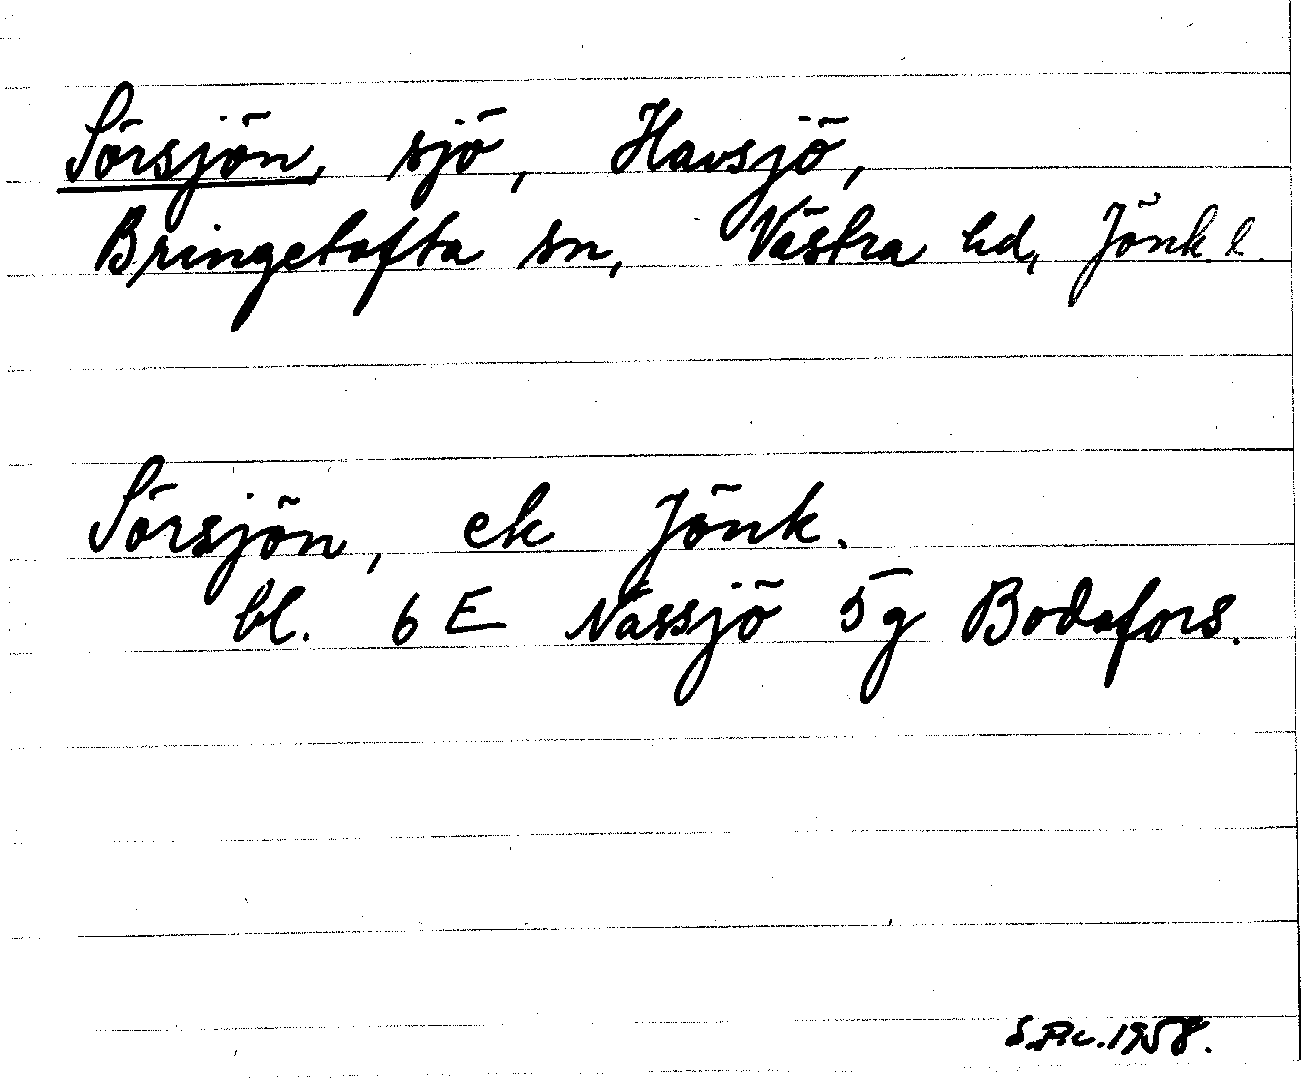 Sörsjön, sjö, Havsjö,
Bringetofta sn, Västra hd, Jönk. l.
Sörsjön, ek Jönk.
bl. 6 E Nässjö 5 g Bodafors.
1958.